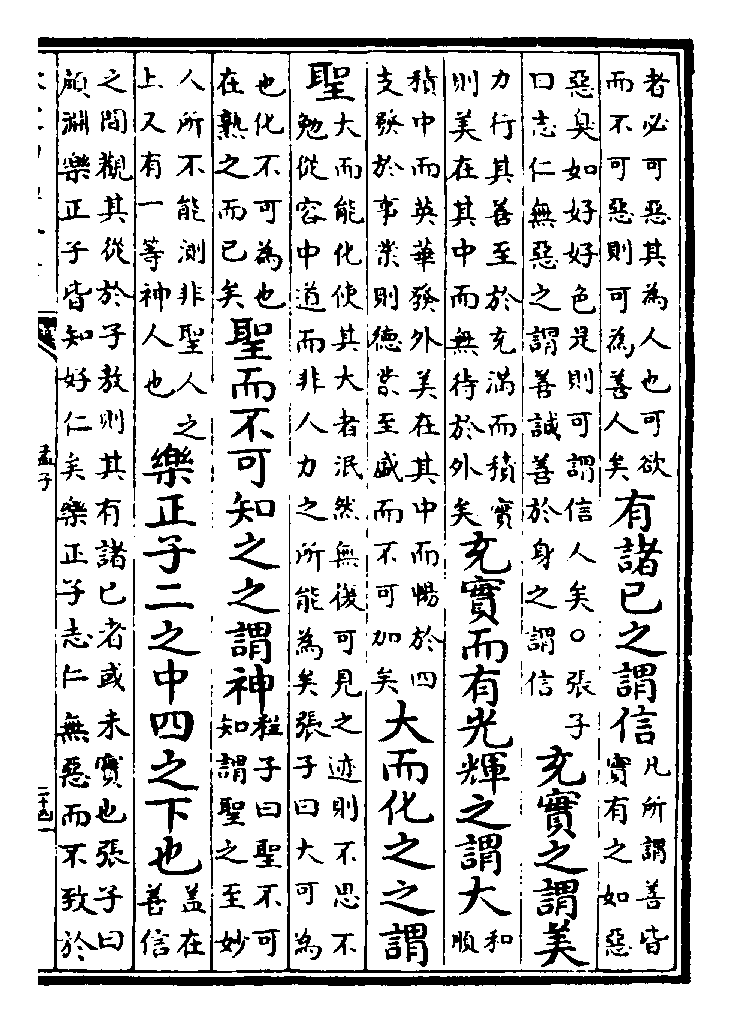 者必可惡其為人也可欲
而不可惡則可為善人矣
有諸已之謂信
凡所謂善皆
實有之如惡
惡臭如好好色是則可謂信人矣○張子
曰志仁無惡之謂善誠善於身之謂信
充實之謂美
力行其善至於充滿而積實
則美在其中而無待於外矣
充實而有光輝之謂大
和
順
積中而英華發外美在其中而暢於四
支發於事業則德業至盛而不可加矣
大而化之之謂
聖
大而能化使其大者泯然無復可見之迹則不思不
勉從容中道而非人力之所能為矣張子曰大可為
也化不可為也
在熟之而已矣
聖而不可知之之謂神
程子曰聖不可
知謂聖之至妙
人所不能測非聖人之
上又有一等神人也
樂正子二之中四之下也
盖在
善信
之間觀其從於子敖則其有諸已者或未實也張子曰
顏淵樂正子皆知好仁矣樂正子志仁無惡而不致於
孟子